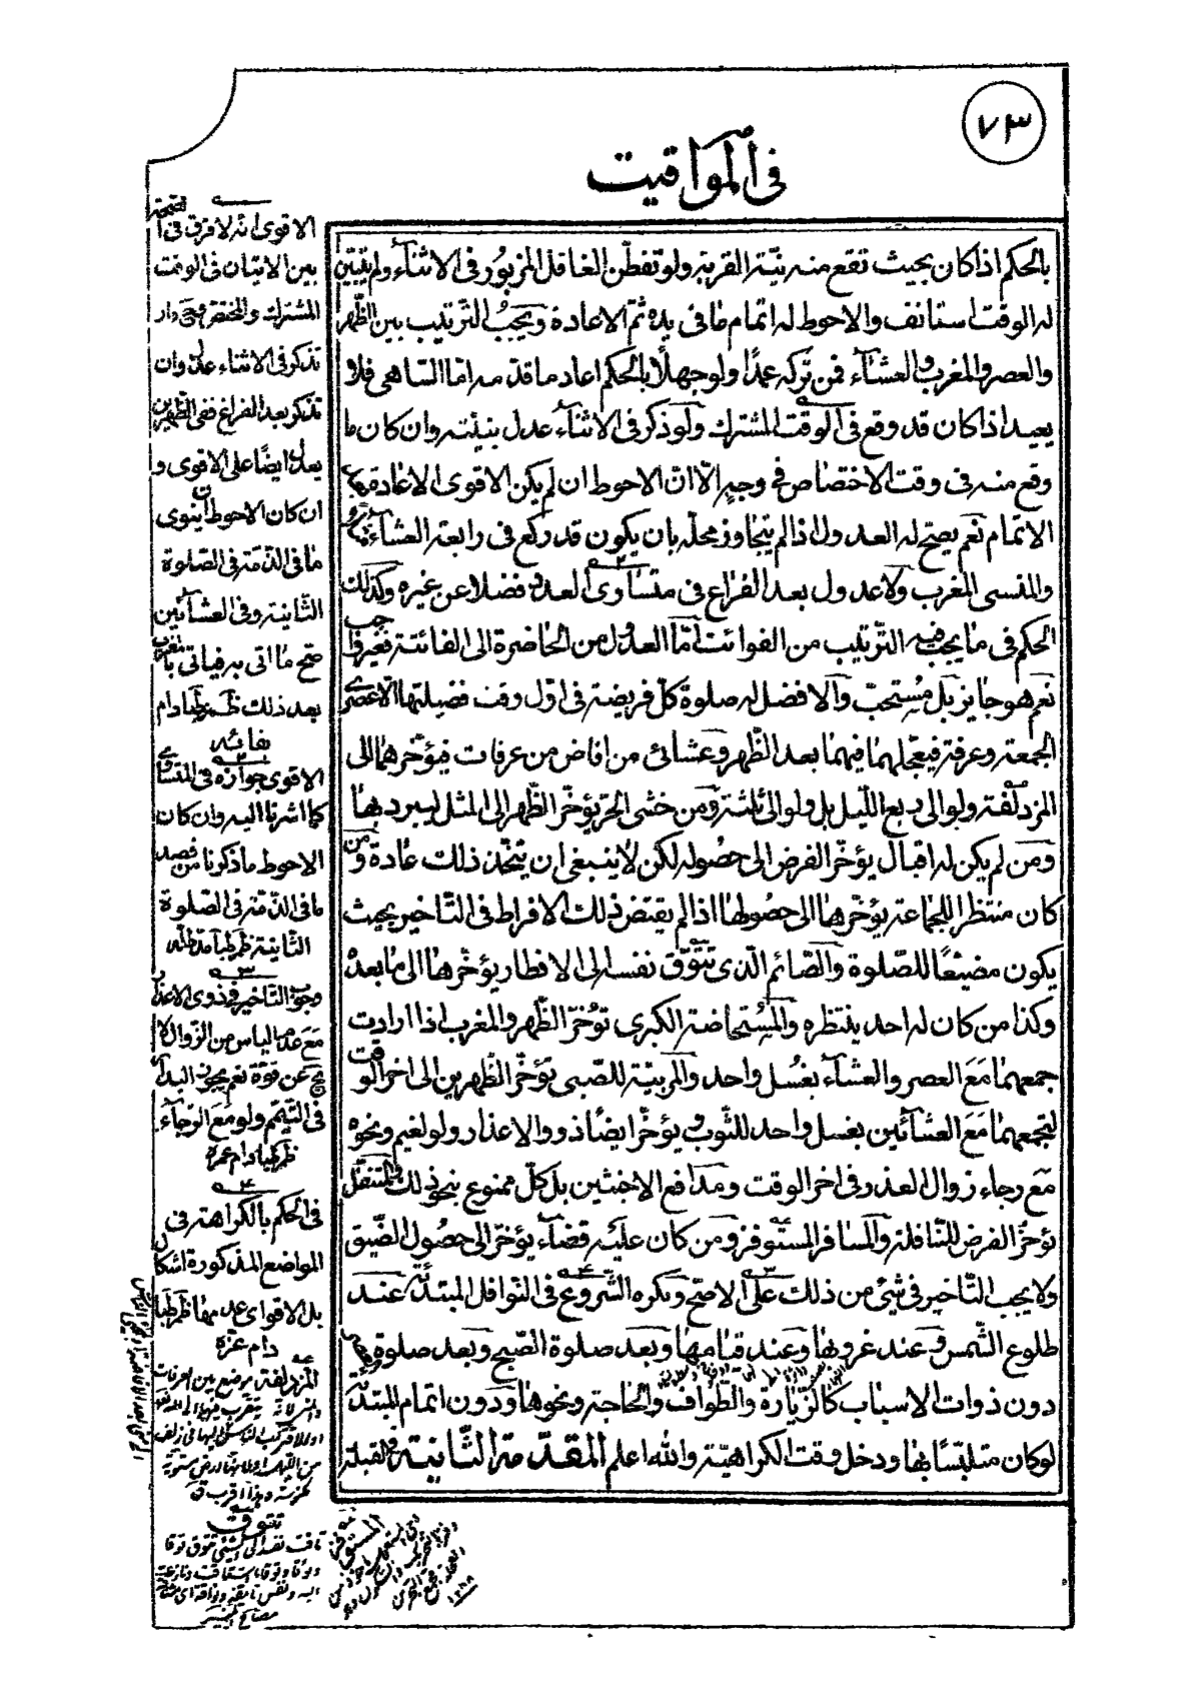 ٧٣
في المواقيت
بالحكم اذا كان بحيث تقع منه نيّة القربة ولو تفطّن الغافل المزبور في الاثناء ولم يتبيّن
له الوقت استانف والاحوط له اتمام ما في يده ثمّ الاعادة ويجب التّرتيب بين الظّهر
والعصر والمغرب والعشاء فمن تركه عمدًا ولو جهلًا بالحكم اعاد ما قدّمه امّا السّاهي فلا
يعيد اذا كان قد وقع في الوقت المشترك ولو ذكر في الاثناء عدل بنيّته وان كان ما
وقع منه في وقت الاختصاص في وجه الّا انّ الاحوط ان لم يكن الاقوى الاعادة بعد
الاتمام نعم يصحّ له العدول اذا لم يتجاوز محلّه بان يكون قد ركع في رابعة العشاء
والمنسي المغرب ولا عدول بعد الفراغ في متساوى العدد فضلا عن غيره وكذلك
الحكم في ما يجب فيه التّرتيب من الفوائت امّا العدول من الحاضرة الى الفائتة فغير واجب
نعم هو جايز بل مستحبّ والافضل له صلوة كلّ فريضة في اوّل وقت فضيلتها الّا عصري
الجمعة وعرفة فيعجّلهما فيهما بعد الظّهر وعشائى من افاض من عرفات فيؤخّرهما الى
المزدلفة ولو الى ربع اللّيل بل ولو الى ثلثه ومن خشى الحرّ يؤخّر الظّهر الى المثل ليبرد بها
ومن لم يكن له اقبال يؤخّر الفرض الى حصوله لكن لا ينبغى ان يتّخذ ذلك عادة ومن
كان منتظرا للجماعة يؤخّرها الى حصولها اذا لم يقتض ذلك الافراط في التّاخير بحيث
يكون مضيّعًا للصّلوة والصّائم الّذى تتوّق نفسه الى الافطار يؤخّرها الى ما بعده
وكذا من كان له احد ينتظره والمستحاضة الكبرى تؤخّر الظّهر والمغرب اذا ارادت
جمعهما مع العصر والعشاء بغسل واحد والمربّية للصّبى تؤخّر الظّهرين الى اخر الوقت
لتجمعهما مع العشائين بغسل واحد للثّوب ويؤخّر ايضًا ذوو الاعذار ولو لغيم ونحوه
مع رجاء زوال العذر في اخر الوقت ومدافع الاخبثين بل كلّ ممنوع بنحو ذلك والمتنفّل
يؤخّر الفرض للنّافلة والمسافر المستوفز ومن كان عليه قضاء يؤخّر الى حصول الضّيق
ولا يجب التّاخير في شئ من ذلك على الاصحّ ويكره الشّروع في النّوافل المبتدئة عند
طلوع الشّمس وعند غروبها وعند قيامها وبعد صلوة الصّبح وبعد صلوة
دون ذوات الاسباب كالزّيارة والطّواف والحاجة ونحوها ودون اتمام المبتدئة
لو كان متلبّسًا بها ودخل وقت الكراهيّة والله اعلم المقدّمة الثّانية في القبلة
الاقوى انّه لا فرق في الصّحة
بين الاتيان في الوقت
المشترك والمختصّ
تذكّر في الاثناء عدل وان
تذكّر بعد الفراغ ففي الظّهرين
يعدل ايضًا على الاقوى و
ان كان الاحوط ان ينوى
ما في الذّمة في الصّلوة
الثّانية وفي العشائين
صحّ ما اتى به فياتي بالمغرب
بعد ذلك ظم طبا دام
بقائه
الاقوى جوازه في المتساوى
كما اشرنا اليه وان كان
الاحوط ما ذكرنا من قصد
ما في الذّمة في الصّلوة
الثّانية ظم طبا مدّ ظلّه
٣
وجوب التّاخير في ذوى الاعذار
مع عدم الياس من الزّوال لا
يخ عن قوّة نعم يجوز البدار
في التّيمّم ولو مع الرّجاء
ظم طبا دام عمره
٤
في الحكم بالكراهة في
المواضع المذكورة اشكال
بل الاقوى عدمها ظم طبا
دام عزه
المزدلفة موضع بين العرفات
تتوق
تاقت نفسه الى الشّئ تتوق توقا
مصباح المنير
المستوفز
١٢٨٨